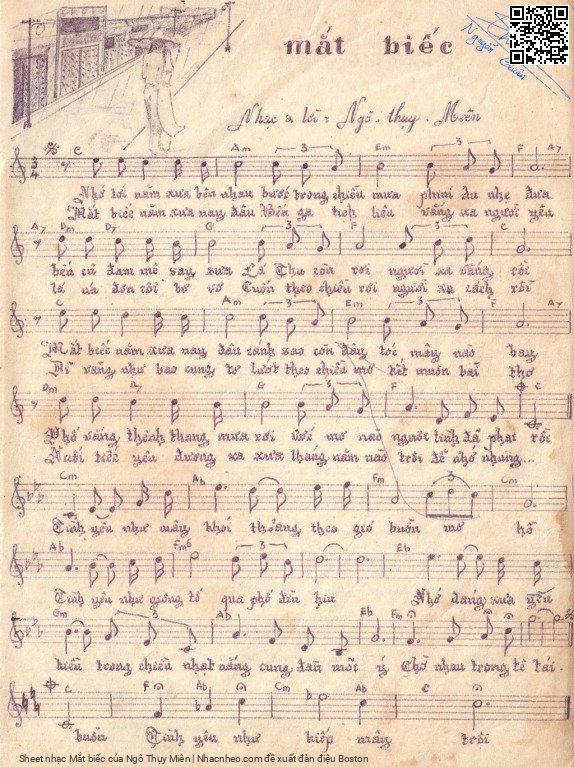 mắt biếc
Nguyễn
Nhạc & lời : Ngô - thụy - Miên
C Am Em F A7
3/4 3 3
Nhớ tới năm xưa bên nhau bước trong chiều mưa phím du nhẹ đưa
Mắt biếc năm xưa nay đâu Bến ga tịch liêu vắng xa người yêu
A7 Dm D7 G Em F C
3 3
bến cũ đam mê say sưa Lá Thu còn rơi người xa vắng rồi
lá úa đơn côi bơ vơ Cuốn theo chiều rơi người xa cách rồi
C Am Em F A7
3 3
Mắt biếc năm xưa nay đâu cánh sao còn đây tóc mây nào bay
Dĩ vãng như bao cung tơ lướt theo chiều mơ kết muôn bài thơ
Dm D7 G G7 C
3 3
Phố vắng thênh thang mưa rơi ước mơ nào người tình đã phai rồi
Nuối tiếc yêu đương xa xưa tháng năm nào trôi để nhớ nhung...
Cm Ab Cm Fm
3 3
Tình yêu như mây khói thoáng theo gió buồn mơ hồ
Ab Fm6 Eb
3
Tình yêu như giông tố qua phố đìu hiu Nhớ dáng xưa yêu
Gm Ab Eb Fm G
3 3
kiều trong chiều nhạt nắng cung đàn mỗi ý Chờ nhau trong tê tái.
C F Ab Cm Ab C
buồn Tình yêu như kiếp mây trôi
Sheet nhạc Mắt biếc của Ngô Thụy Miên | Nhacnheo.com đề xuất đàn điệu Boston